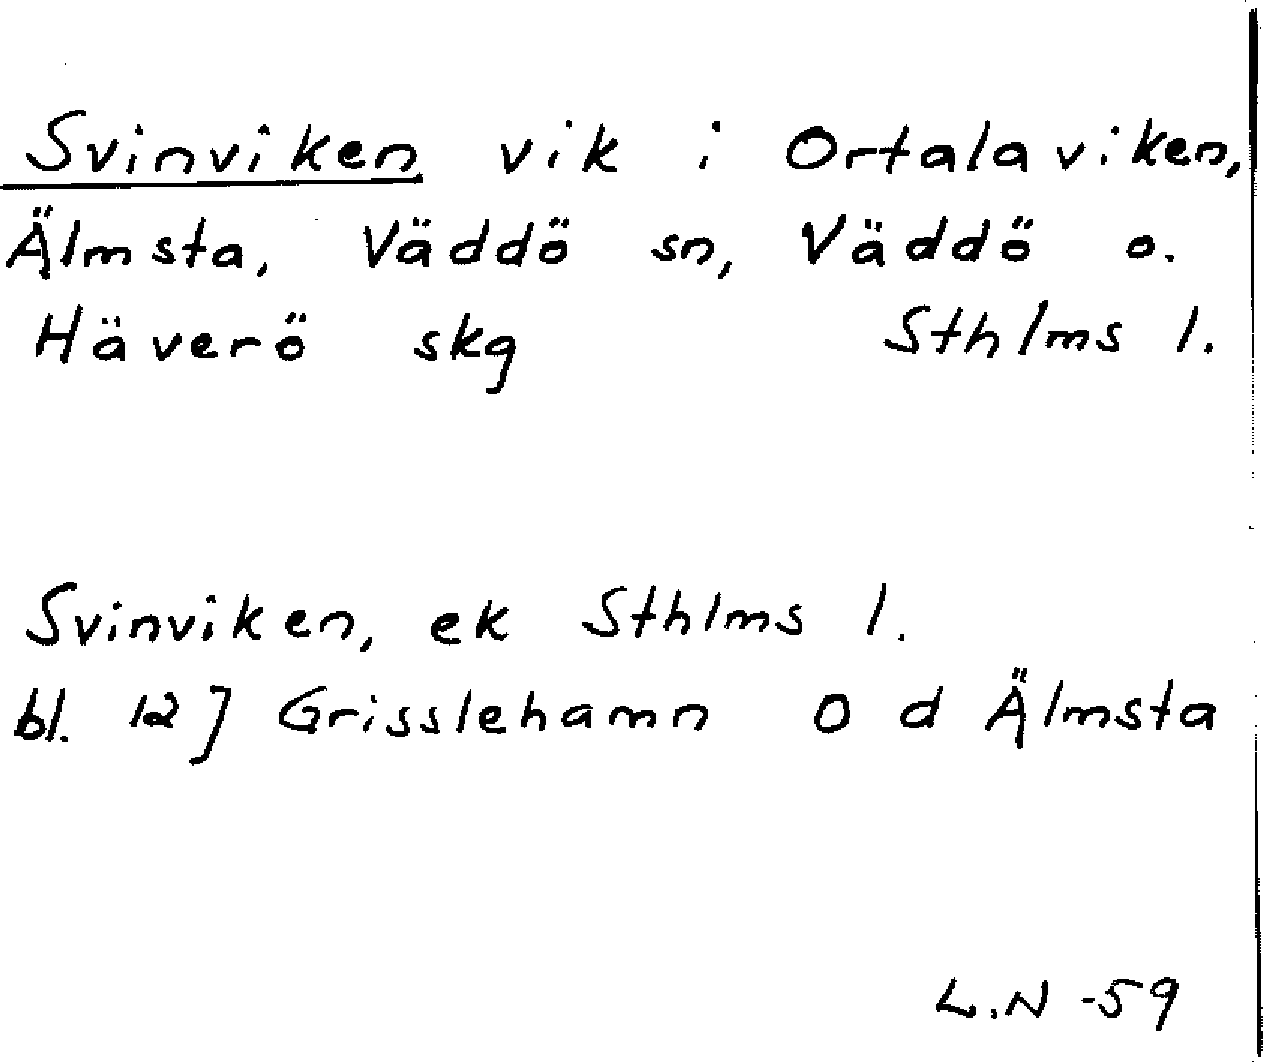 Svinviken vik i Ortalaviken,
Älmsta, Väddö sn, Väddö o.
Häverö skg Sthlms l.
Svinviken, ek Sthlms l.
bl. 12] Grisslehamn O d Älmsta
L.N -59